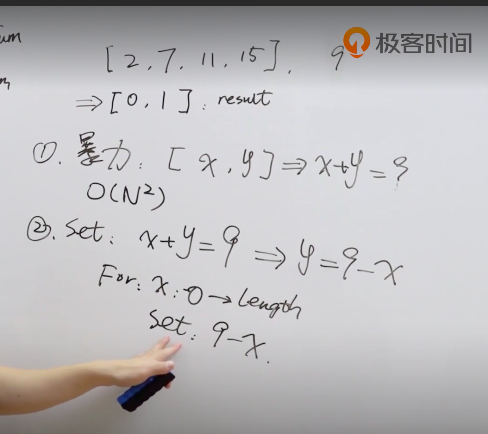 极客时间
um
m
[2, 7, 11, 15], 9
⇒[0, 1]: result
①. 暴力: [x, y] ⇒ x+y=9
O(N²)
②. Set: x+y=9 ⇒ y=9-x
For: x: 0→length
Set: 9-x.